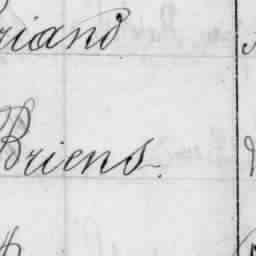 riand
Briens.